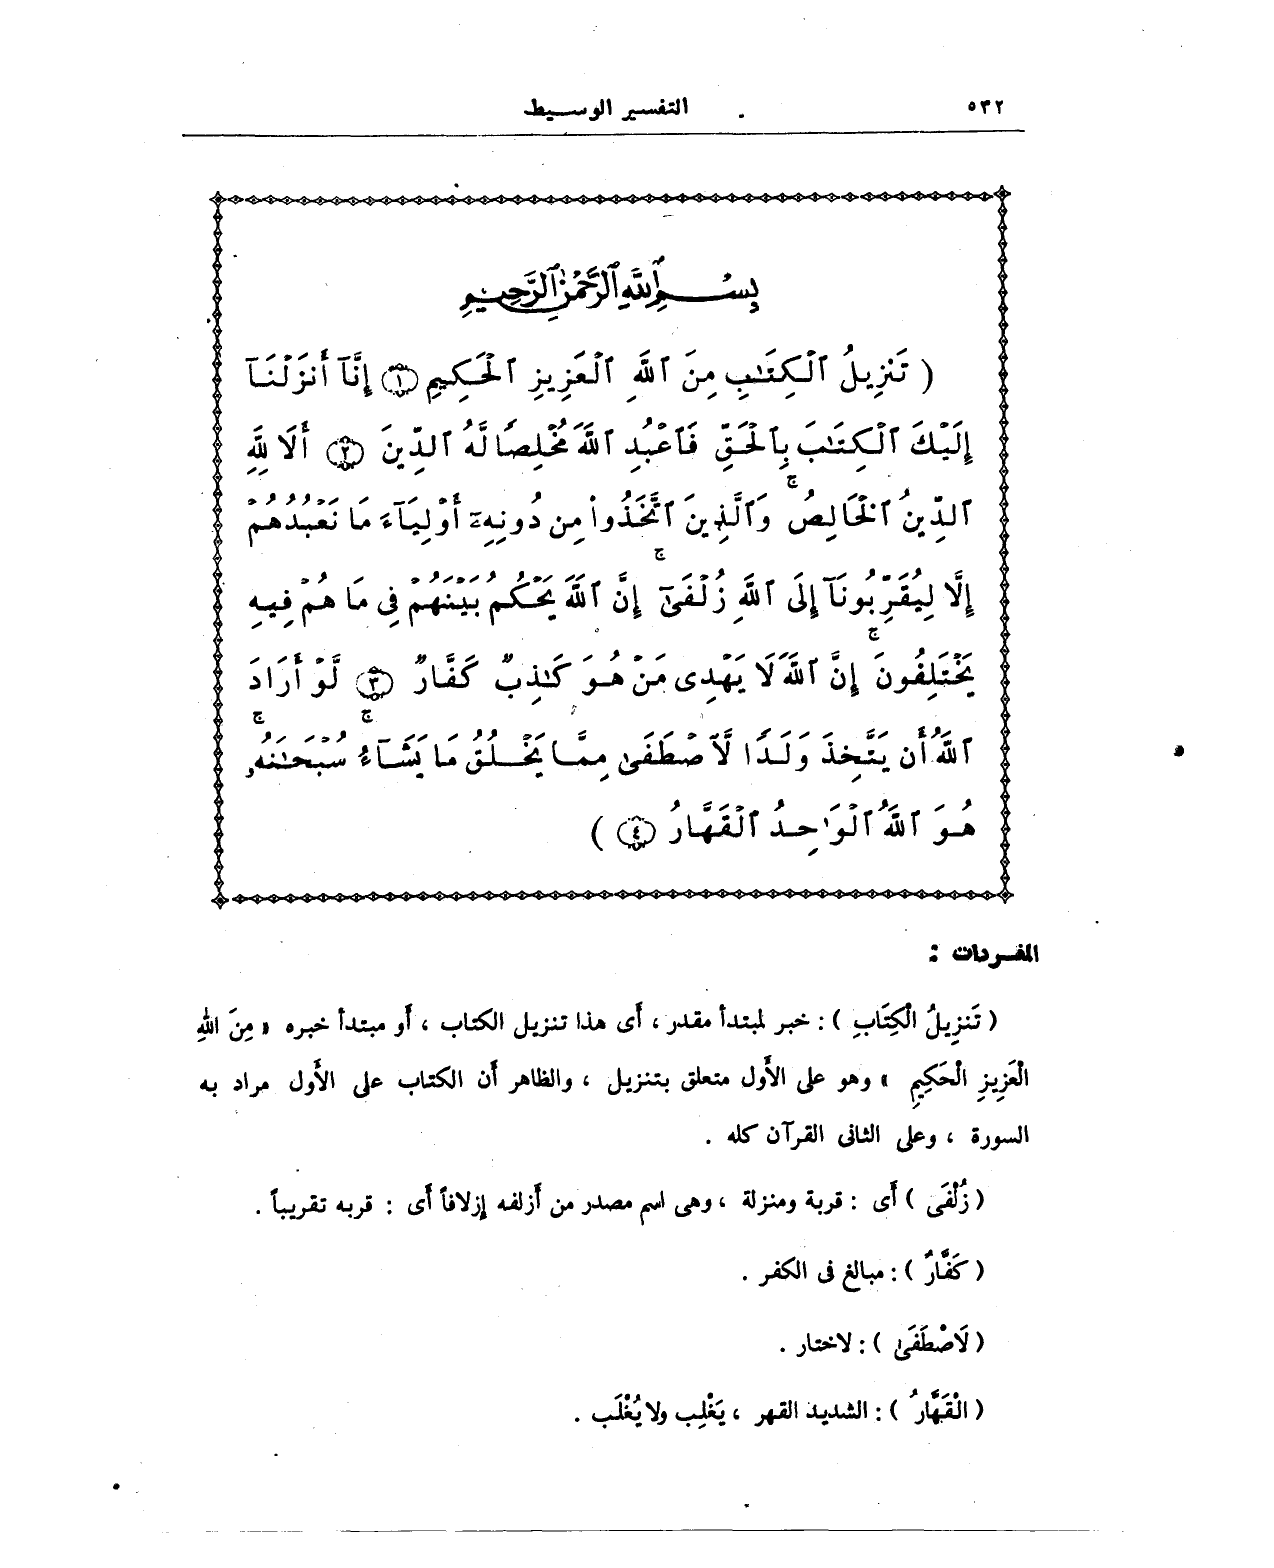 ٥٣٢
التفسير الوسيط
بِسْمِ ٱللَّهِ ٱلرَّحْمَٰنِ ٱلرَّحِيمِ
( تَنزِيلُ ٱلْكِتَٰبِ مِنَ ٱللَّهِ ٱلْعَزِيزِ ٱلْحَكِيمِ ١ إِنَّآ أَنزَلْنَآ
إِلَيْكَ ٱلْكِتَٰبَ بِٱلْحَقِّ فَٱعْبُدِ ٱللَّهَ مُخْلِصًا لَّهُ ٱلدِّينَ ٢ أَلَا لِلَّهِ
ٱلدِّينُ ٱلْخَالِصُ ۚ وَٱلَّذِينَ ٱتَّخَذُوا۟ مِن دُونِهِۦٓ أَوْلِيَآءَ مَا نَعْبُدُهُمْ
إِلَّا لِيُقَرِّبُونَآ إِلَى ٱللَّهِ زُلْفَىٰٓ ۚ إِنَّ ٱللَّهَ يَحْكُمُ بَيْنَهُمْ فِى مَا هُمْ فِيهِ
يَخْتَلِفُونَ ۚ إِنَّ ٱللَّهَ لَا يَهْدِى مَنْ هُوَ كَٰذِبٌ كَفَّارٌ ٣ لَّوْ أَرَادَ
ٱللَّهُ أَن يَتَّخِذَ وَلَدًا لَّٱصْطَفَىٰ مِمَّا يَخْلُقُ مَا يَشَآءُ ۚ سُبْحَٰنَهُۥ ۚ
هُوَ ٱللَّهُ ٱلْوَٰحِدُ ٱلْقَهَّارُ ٤ )
المفردات :
( تَنزِيلُ الْكِتَابِ ) : خبر لمبتدأ مقدر ، أى هذا تنزيل الكتاب ، أو مبتدأ خبره « مِنَ اللهِ
الْعَزِيزِ الْحَكِيمِ » وهو على الأول متعلق بتنزيل ، والظاهر أن الكتاب على الأول مراد به
السورة ، وعلى الثانى القرآن كله .
( زُلْفَى ) أى : قربة ومنزلة ، وهى اسم مصدر من أزلفه إزلافاً أى : قربه تقريباً .
( كَفَّارٌ ) : مبالغ فى الكفر .
( لَاصْطَفَىٰ ) : لاختار .
( الْقَهَّارُ ) : الشديد القهر ، يَغْلِب ولا يُغْلَب .